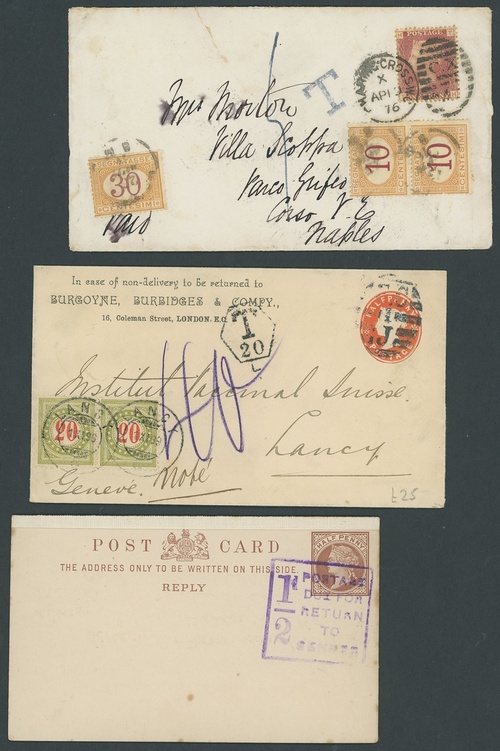 T
CHARING CROSS
X
AP
76
Mrs Morton
Villa Scoppa
Parco Grifeo
Corso V. E
Naples
10
10
CENTESIMI
CENTESIMI
30
CENTESIMI
Paid
In case of non-delivery to be returned to
BURGOYNE, BURBIDGES & COMPY.,
16, Coleman Street, LONDON. E.C.
T
20
L
HALFPENNY
J
40
Institut Vaccinal Suisse
Lancy
20
20
LANCY
LANCY
Genève.
£25
POST CARD
THE ADDRESS ONLY TO BE WRITTEN ON THIS SIDE.
REPLY
HALF PENNY
1d/2
POSTAGE
DUE FOR
RETURN
TO
SENDER